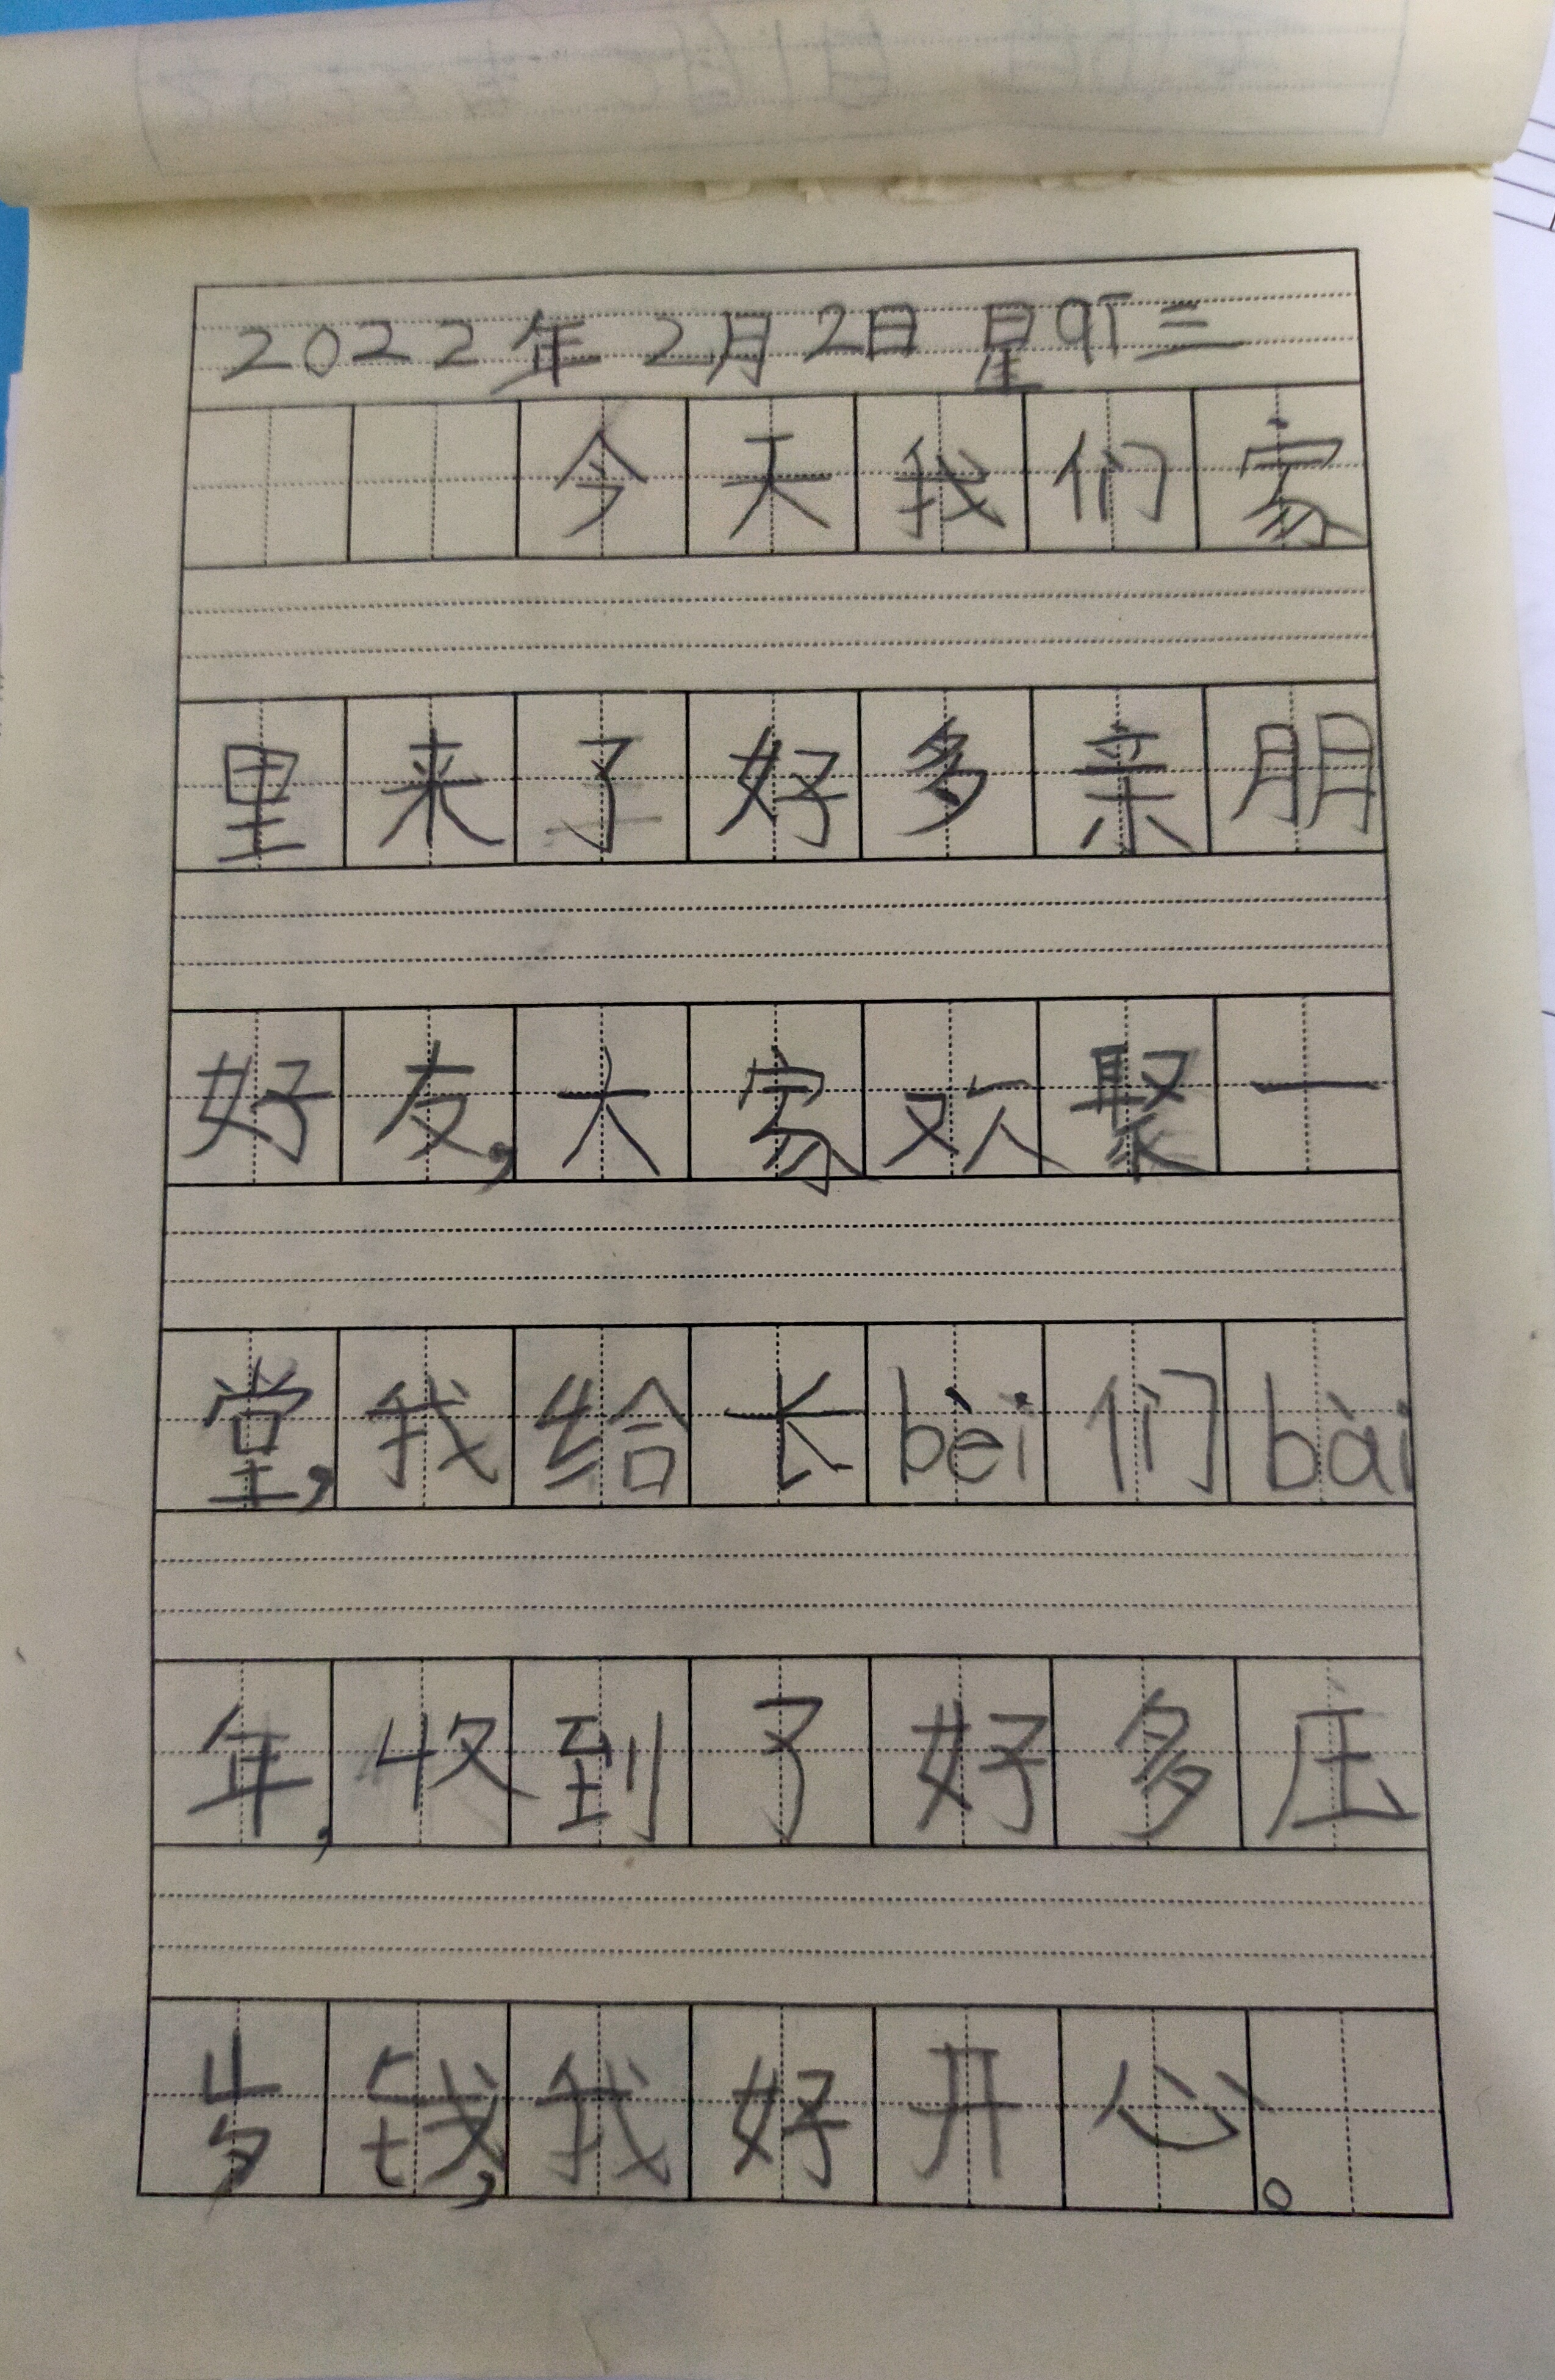 2022年2月2日 星qī三
今天我们家
里来了好多亲朋
好友,大家欢聚一
堂,我给长bèi们bài
年,收到了好多压
岁钱,我好开心。